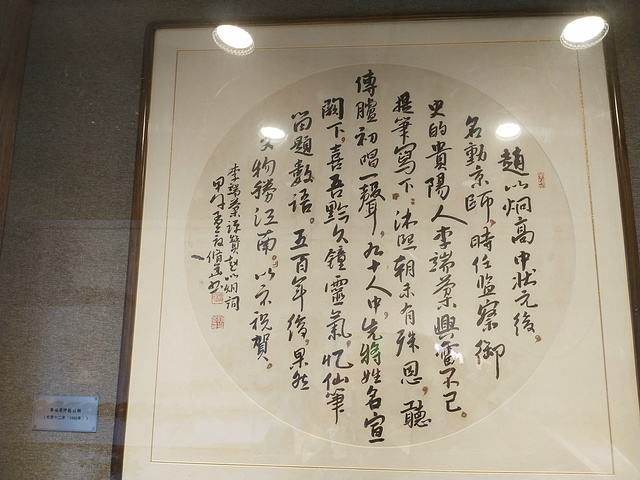 趙以炯高中狀元後，
名動京師，時任監察御
史的貴陽人李端棻興奮不已。
提筆寫下：沐熙朝未有殊恩，聽
傳臚初唱一聲，九十人中，先將姓名宣
闕下。喜吾黔久鐘靈氣，憶仙筆
留題數語。五百年後，果然
文物勝江南。以示祝賀。
李端棻詠贊趙以炯詞
甲午孟夏